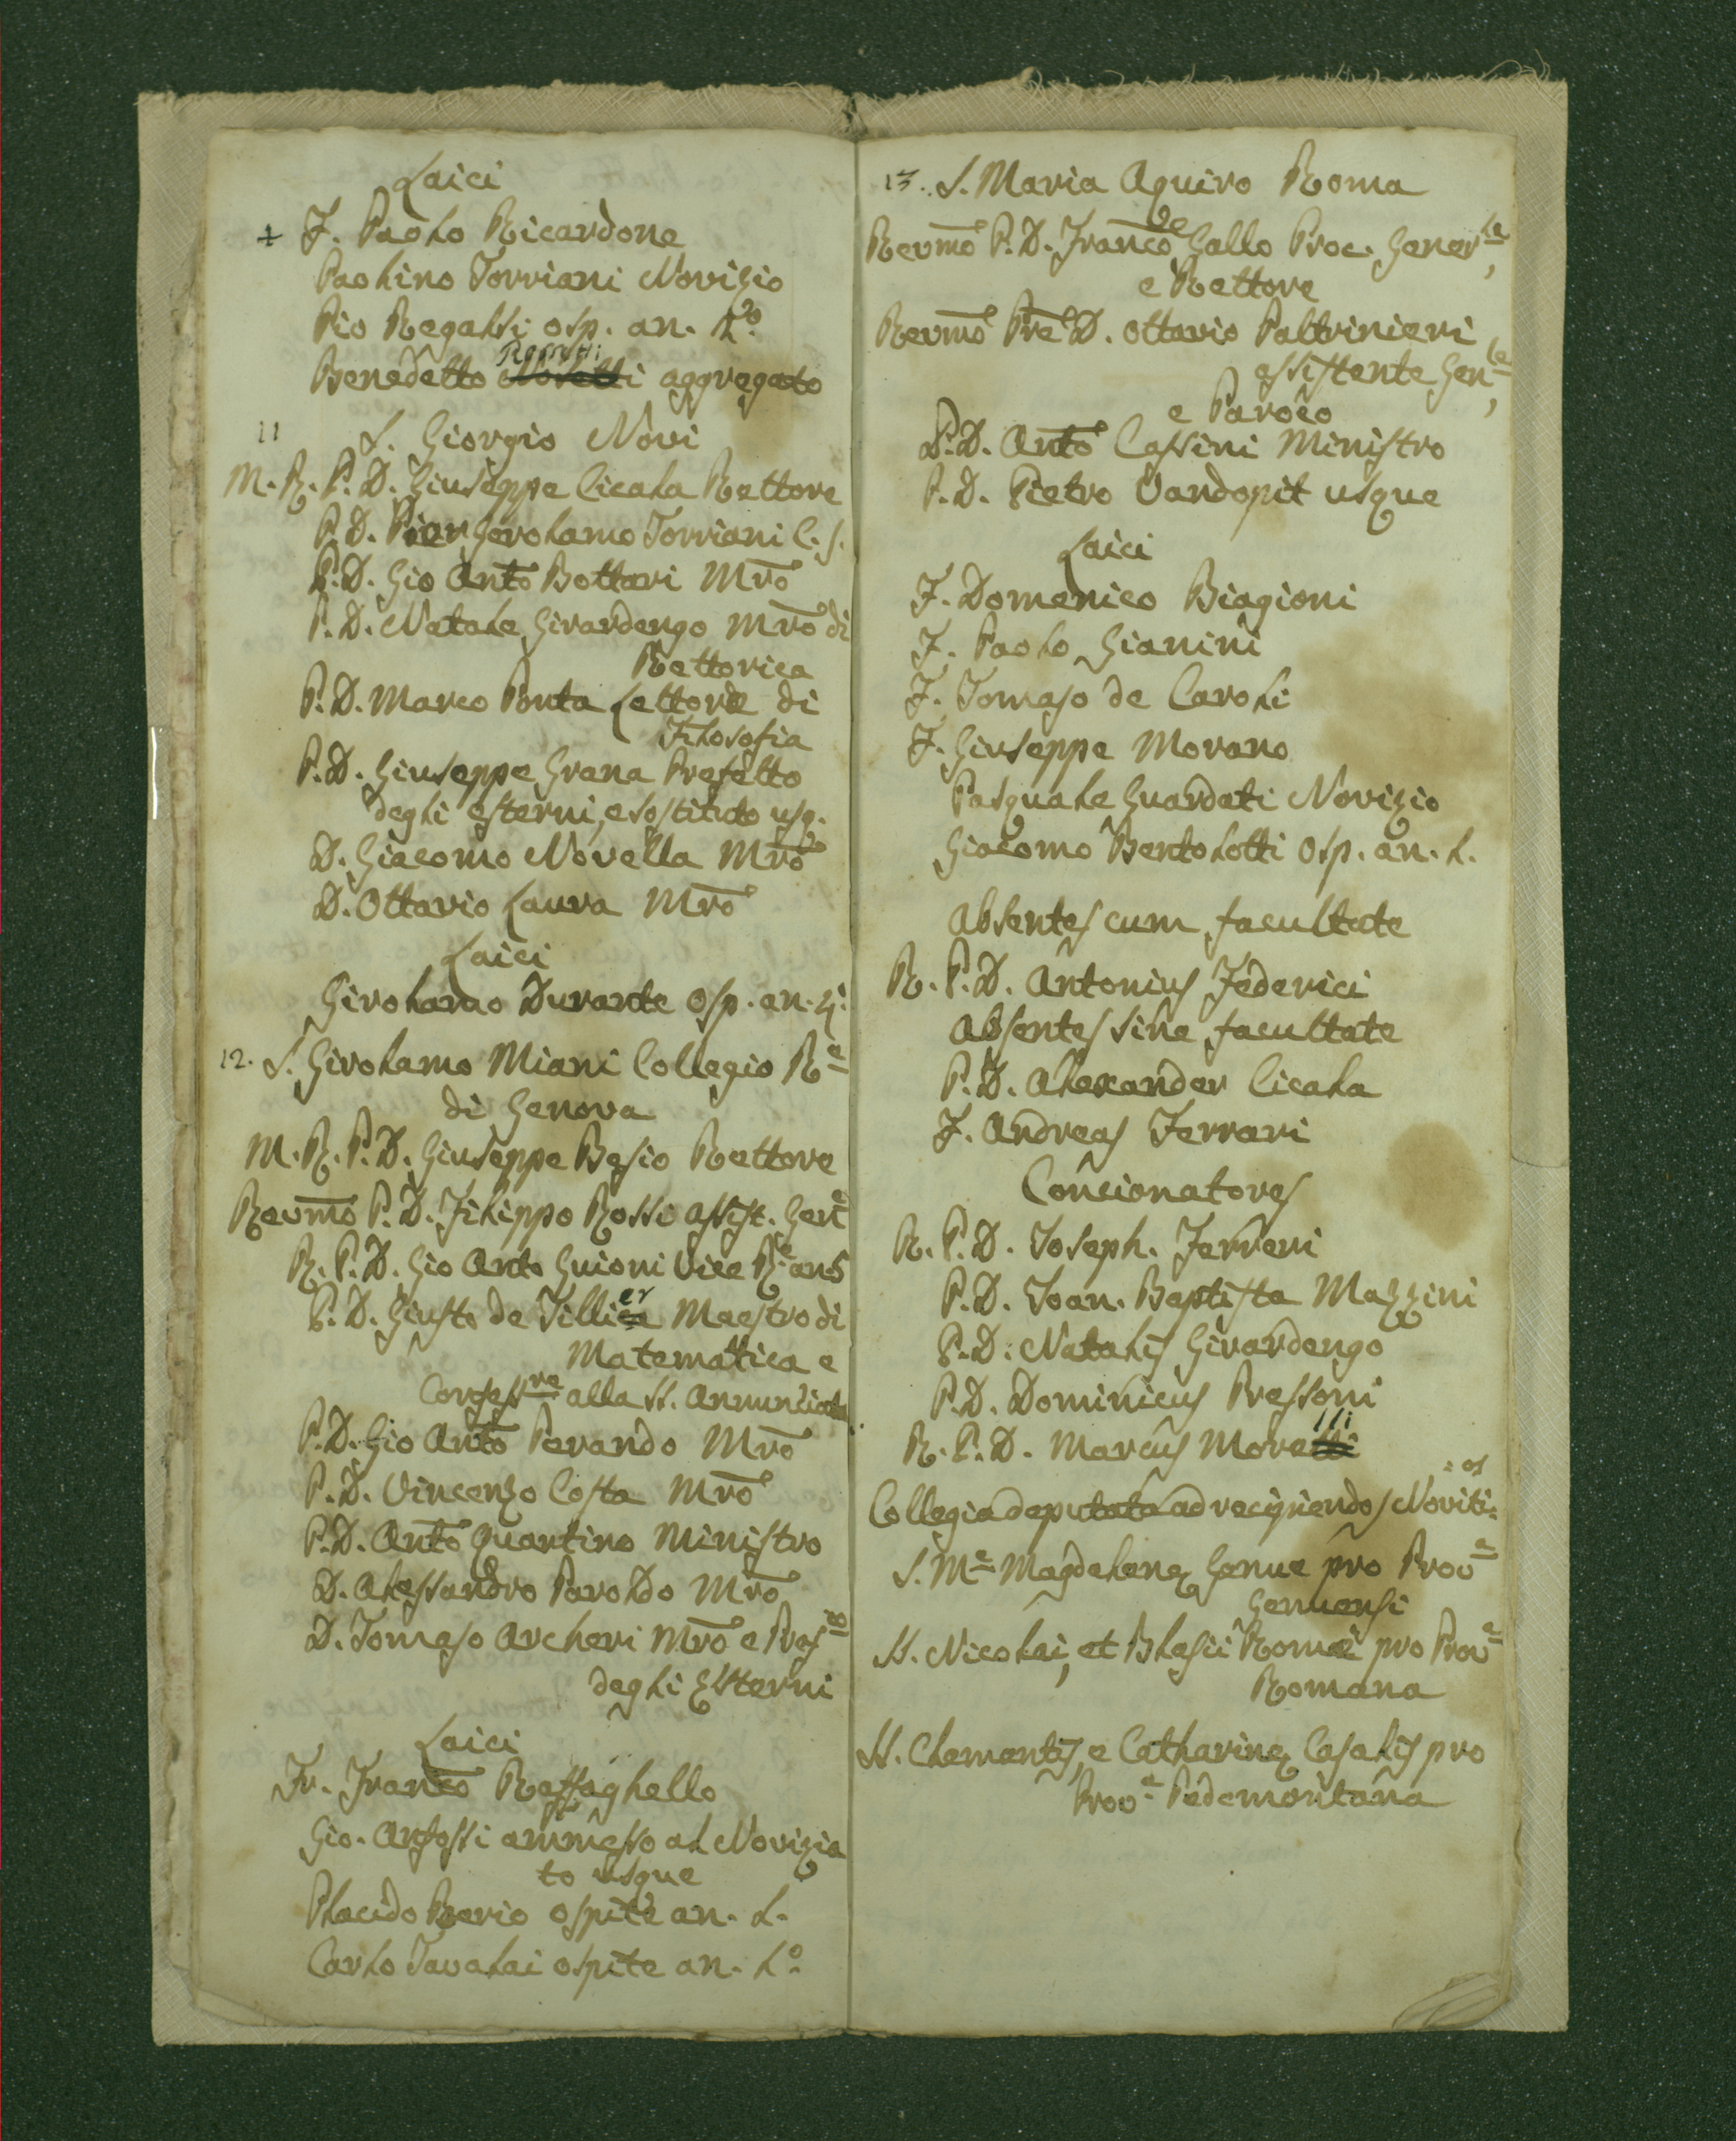 Laici
+ F. Paolo Ricardone
Paolino Torriani Novizio
Pio Regassi osp. an. L.º
Benedetto Novelli aggregato
11 S. Giorgio Novi
M. R. P. D. Giuseppe Cicala Rettore
P. D. Pier Gerolamo Torriani C. S.
P. D. Gio Antº Bottari Mrõ
P. D. Natale Girardengo Mrõ di
Rettorica
P. D. Marco Ponta Lettore di
Filosofia
P. D. Giuseppe Grana Prefetto
degli esterni, e sostituto usq.
D. Giacomo Novella Mrõ
D. Ottavio Laura Mrõ
Laici
Girolamo Durante osp. an.
12. S. Girolamo Miani Collegio Rᵉ
di Genova
M. R. P. D. Giuseppe Besio Rettore
Revmõ P. D. Filippo Rossi assist. Genᵉ
R. P. D. Gio Antº Guioni Vice Rᵉ an 5
P. D. Giusto de Tillier Maestro di
Matematica e
Confessʳᵉ alla SS. Annunciata
P. D. Gio Antº Perando Mrõ
P. D. Vincenzo Costa Mrõ
P. D. Antº Quartino Ministro
D. Alessandro Paroldo Mrõ
D. Tomaso Archeri Mrõ e Prefᵗᵒ
degli Esterni
Laici
Fr. Francº Raffaghello
Gio. Anfossi ammesso al Novizia
to usque
Placido Berio ospite an. L.
Carlo Tavalai ospite an. L.º
13. S. Maria Aquiro Roma
Revmõ P. D. Francº de Gallo Proc. Generˡᵉ,
e Rettore
Revmõ Prẽ D. Ottavio Paltrinieri
assistente Genˡᵉ,
e Paroco
P. D. Antº Cassini Ministro
P. D. Pietro Vandopit usque
Laici
F. Domenico Biagioni
F. Paolo Gianini
F. Tomaso de Caroli
F. Giuseppe Morano
Pasquale Guardati Novizio
Giacomo Bertolotti Osp. an. L.
Absentes cum facultate
R. P. D. Antonius Federici
Absentes sine facultate
P. D. Alexander Cicala
F. Andreas Ferrari
Concionatores
R. P. D. Joseph. Ferreri
P. D. Joan. Baptista Mazzini
P. D. Natalis Girardengo
P. D. Dominicus Pressoni
R. P. D. Marcus Morelli
Collegia deputata ad recipiendos Novitios
S. Mᵉ Magdelenę Genue pro Provᵃ
Genuensi
SS. Nicolai, et Blasii Romæ pro Provᵃ
Romana
SS. Clementis, e Catharinę Casalis pro
Provᵃ Pedemontana